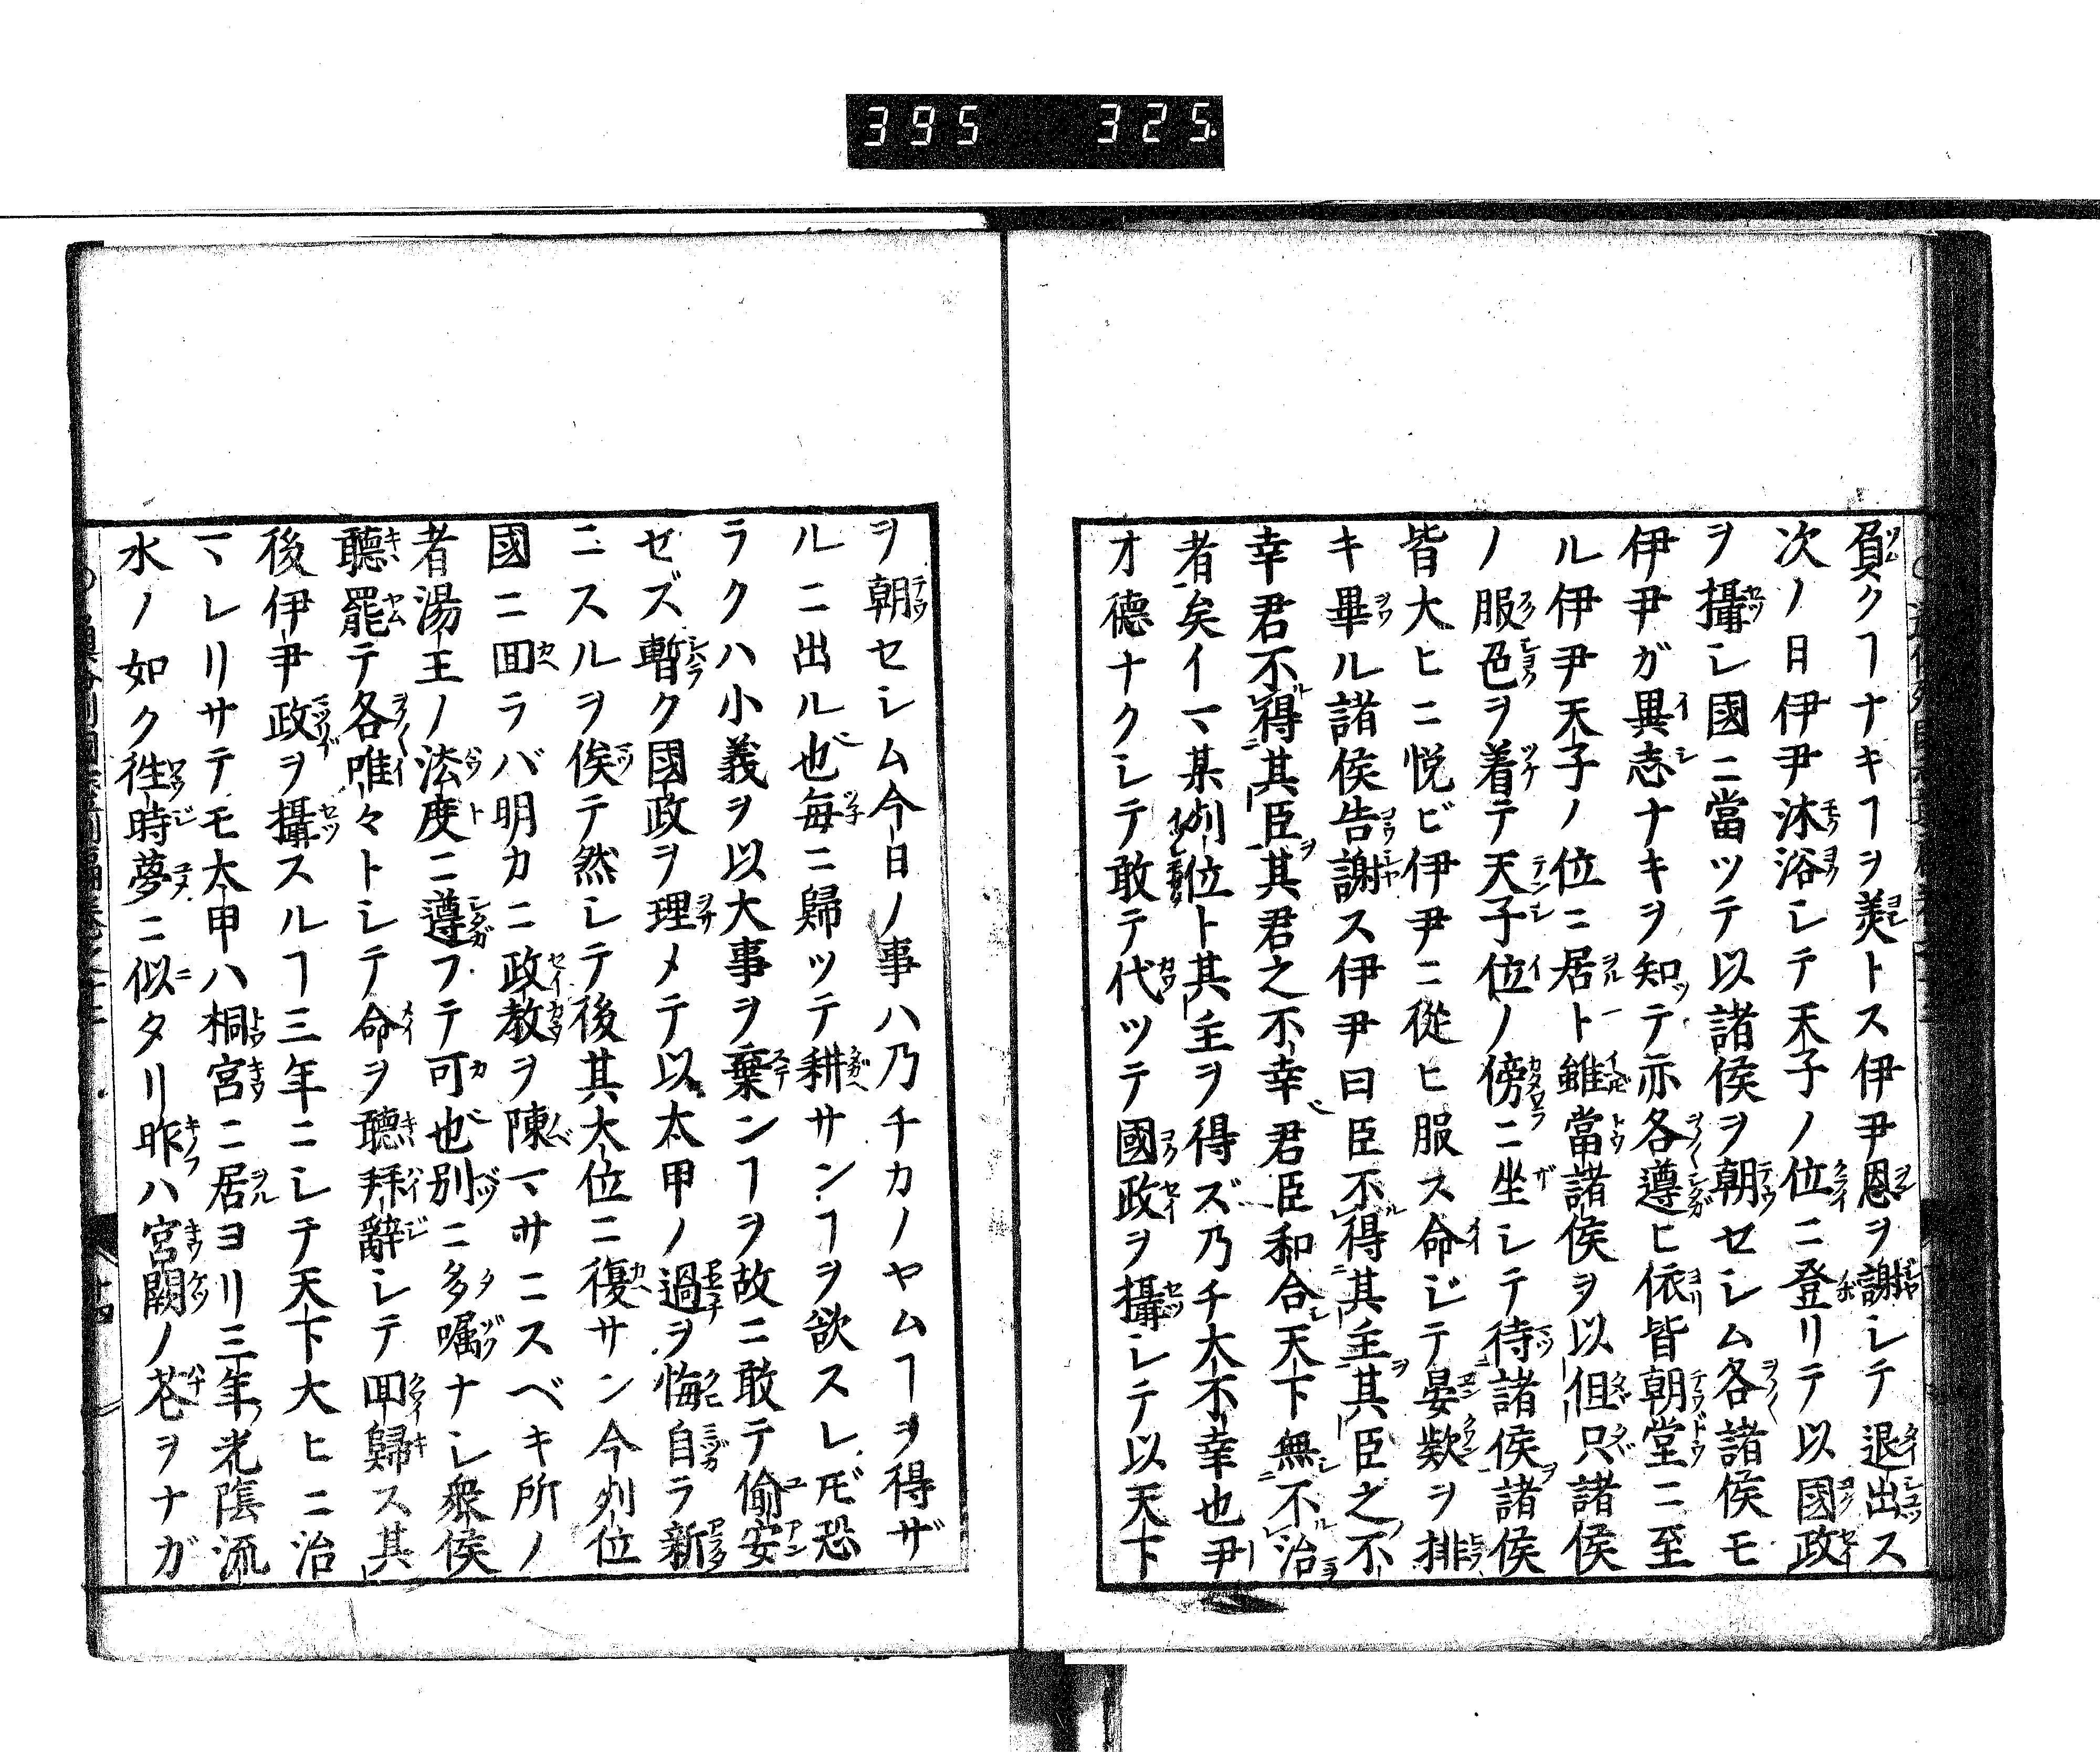 395 325
負クヿナキヿヲ美トス伊尹恩ヲ謝シテ退出ス
次ノ日伊尹沐浴シテ天子ノ位ニ登リテ以國政
ヲ攝シ國ニ當ツテ以諸侯ヲ朝セシム各諸侯モ
伊尹ガ異志ナキヲ知テ亦各遵ヒ依皆朝堂ニ至
ル伊尹天子ノ位ニ居ト雖當諸侯ヲ以但只諸侯
ノ服色ヲ着テ天子位ノ傍ニ坐シテ待諸侯諸侯
皆大ヒニ悦ビ伊尹ニ從ヒ服ス命ジテ晏欵ヲ排
キ畢ル諸侯告謝ス伊尹曰臣不得其主其臣之不
幸君不得其臣其君之不幸君臣和合天下無不治
者矣イマ某列位ト其主ヲ得ズ乃チ大不幸也尹
オ德ナクシテ敢テ代ツテ國政ヲ攝シテ以天下
ヲ朝セシム今日ノ事ハ乃チカノヤムヿヲ得ザ
ルニ出ル也毎ニ歸ツテ耕サンヿヲ欲スレ𪜈恐
ラクハ小義ヲ以大事ヲ棄ンヿヲ故ニ敢テ偷安
セズ暫ク國政ヲ理メテ以太甲ノ過ヲ悔自ラ新
ニスルヲ俟テ然シテ後其太位ニ復サン今列位
國ニ囬ラバ明カニ政教ヲ陳マサニスベキ所ノ
者湯王ノ法度ニ遵フテ可也別ニ多囑ナシ衆侯
聽罷テ各唯々トシテ命ヲ聽拜辭シテ囬歸ス其
後伊尹政ヲ攝スルヿ三年ニシテ天下大ヒニ治
マレリサテモ太甲ハ桐宮ニ居ヨリ三年光陰流
水ノ如ク徃時夢ニ似タリ昨ハ宮闕ノ花ヲナガ
十四